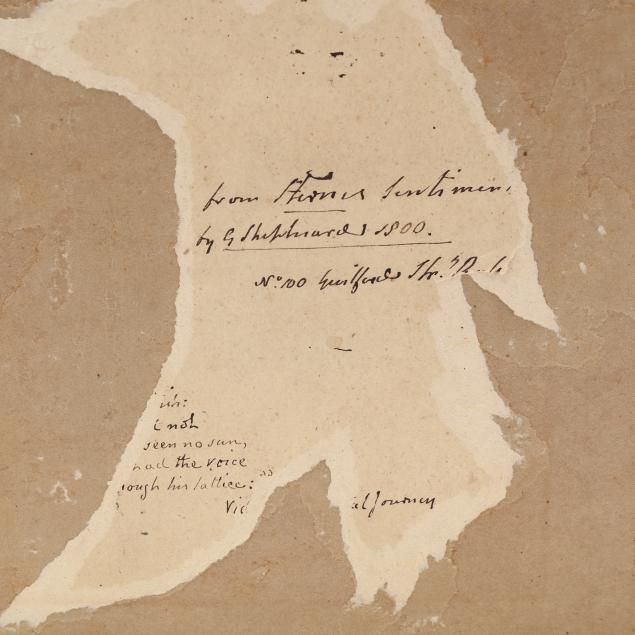 from Sternes Sentimen
by G Shepheard 1800.
No. 100 Guilford Str.
ish:
not
seen no sun,
had the voice
ough his lattice:
Vid
al Journey